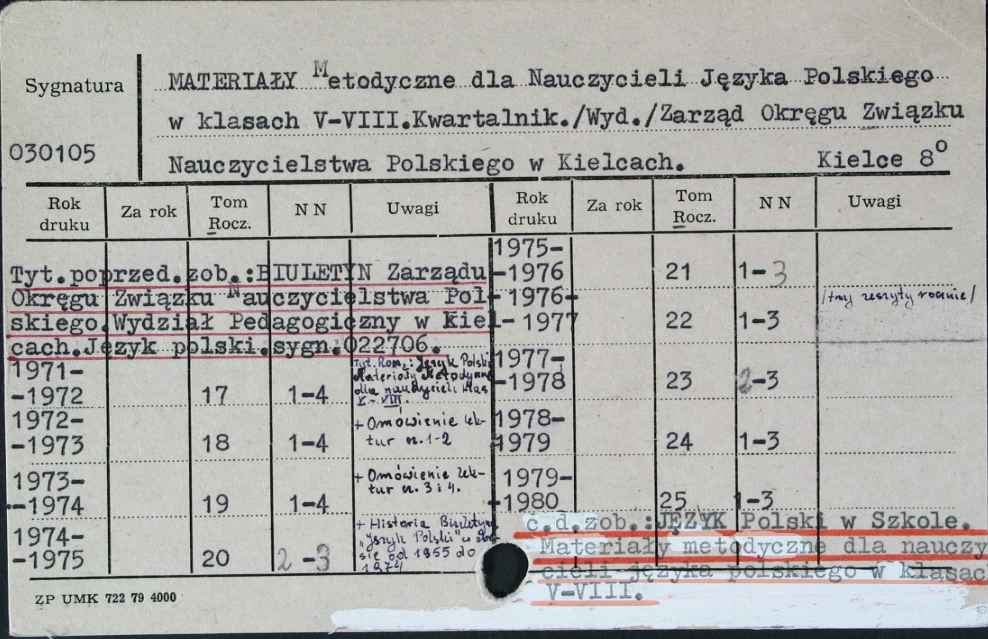 Sygnatura
030105
MATERIAŁY Metodyczne dla Nauczycieli Języka Polskiego
w klasach V-VIII.Kwartalnik./Wyd./Zarząd Okręgu Związku
Nauczycielstwa Polskiego w Kielcach. Kielce 8°
Rok druku Za rok Tom Rocz. NN Uwagi Rok druku Za rok Tom Rocz. NN Uwagi
Tyt.poprzed.zob.:BIULETYN Zarządu
Okręgu Związku Nauczycielstwa Pol-
skiego.Wydział Pedagogiczny w Kiel-
cach.Język polski.sygn.022706.
1971-
-1972 17 1-4
Tyt. Rocz.: Język Polski
Materiały Metodyczne
dla nauczycieli klas
V-VIII.
1972-
-1973 18 1-4
+ Omówienie lek-
tur n.1-2
1973-
-1974 19 1-4
+ Omówienie lek-
tur n. 3 i 4.
1974-
-1975 20 2-3
+ Historia Biuletynu
"Język Polski" w
od 1955 do
1974
1975-
-1976 21 1-3
-1976-
-1977 22 1-3
/trzy zeszyty rocznie/
1977-
-1978 23 2-3
1978-
1979 24 1-3
1979-
-1980 25 1-3
c.d.zob.:JĘZYK Polski w Szkole.
Materiały metodyczne dla nauczy-
cieli języka polskiego w klasach
V-VIII.
ZP UMK 722 79 4000